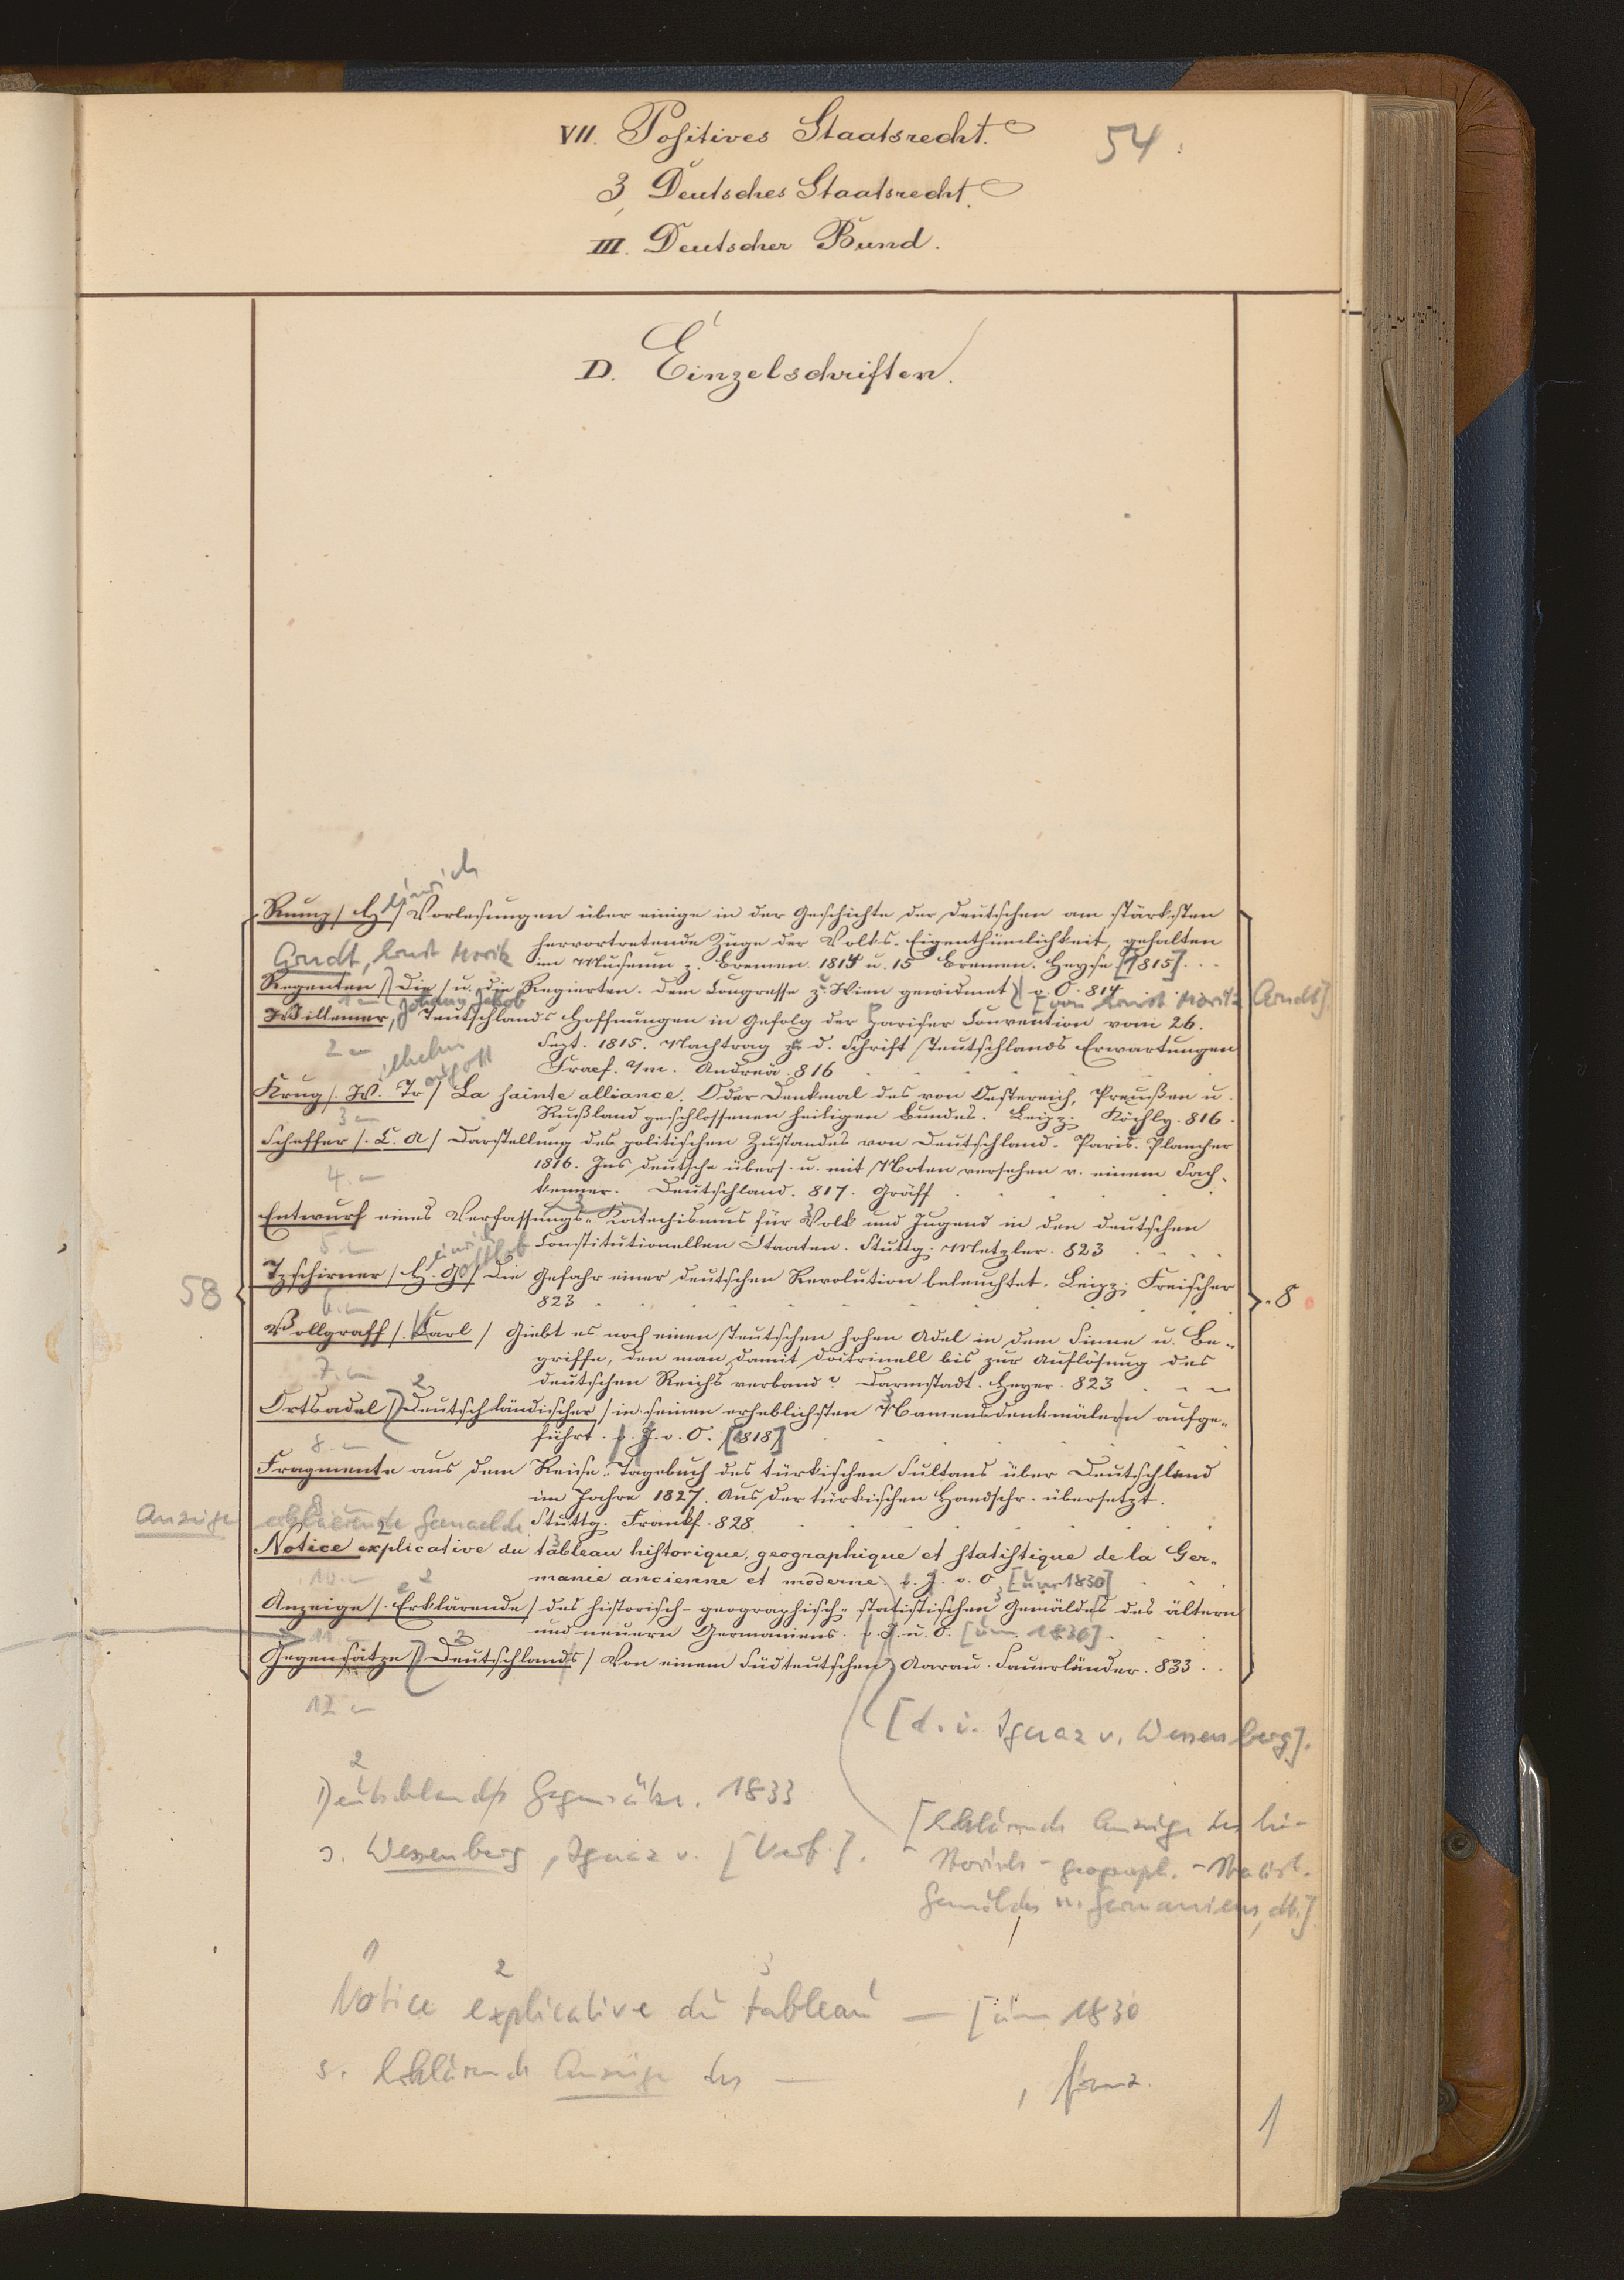 VII. Positives Staatsrecht.
54.
3, Deutsches Staatsrecht.
III. Deutscher Bund.
D. Einzelschriften.
einrich
Rump /. H. / Vorlesungen über einige in der Geschichte der Deutschen am stärksten
hervortretende Züge der Volks-Eigenthümlichkeit, gehalten
Arndt, Ernst Moritz
im Museum z. Bremen. 1814 u. 15 Bremen. Heyse [1815]
Regenten /. Die / u. die Regierten. Dem Congresse zu Wien gewidmet o. O. 814
1. Johann Jakob [von Ernst Moritz Arndt]
Willemer, J. Teutschlands Hoffnungen in Gefolg der Pariser Convention vom 26.
2. Sept. 1815. Nachtrag zu d. Schrift Teutschlands Erwartungen
ilhelm augott
Francf. a/m. Andreä. 816
Krug /. W. Tr / La sainte alliance. Oder Denkmal des von Oestereich, Preußen u.
3. Rußland geschlossenen heiligen Bundes. Leipz. Köchly. 816.
Scheffer /. C. A / Darstellung des politischen Zustandes von Deutschland. Paris. Plancher
1816. Ins deutsche übers. u. mit Noten versehen v. einem Fach-
4. kenner. Deutschland. 817. Gräff
Entwurf eines Verfassungs-Katechismus für Volk und Jugend in den deutschen
5. Constitutionellen Staaten. Stuttg. Metzler. 823
einrich ottlob
Tzschirner /. H. G / Die Gefahr einer deutschen Revolution beleuchtet. Leipz. Fleischer
58
6. 823
8
Vollgraff /. Karl / Giebt es noch einen teutschen hohen Adel in dem Sinne u. Be-
griffe, den man damit doctrinell bis zur Auflösung des
7. deutschen Reichs verband? Darmstadt. Heyer. 823
Ortsadel /. Deutschländischer / in seinen erheblichsten Namensdenkmälern aufge-
8. führt. s. J. u. O. [1818]
Fragmente aus dem Reise-Tagebuch des türkischen Sultans über Deutschland
im Jahre 1827. Aus der türkischen Handschr. übersetzt.
Anzeige erklärende Gemaelde Stuttg. Frankf. 828.
Notice explicative du tableau historique, geographique et statistique de la Ger-
10. manie ancienne et moderne. s. J. u. O. [um 1830]
Anzeige /. Erklärende / des historisch-geographisch-statistischen Gemäldes des ältern
11. und neuern Germaniens. s. J. u. O. [um 1830]
Gegensätze /. Deutschlands / Von einem Südteutschen Aarau. Sauerländer. 833
12
[d. i. Ignaz v. Wessenberg].
Deutschlands Gegensätze. 1833
s. Wessenberg, Ignaz v. [Verf.].
[Erklärende Anzeige des hi-
storisch-geograph.-statist.
Gemäldes Germaniens, dt.]
Notice explicative du tableau — [um 1830
s. Erklärende Anzeige des —
, franz.
1